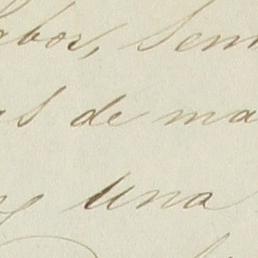 abor, sem
as de ma
una